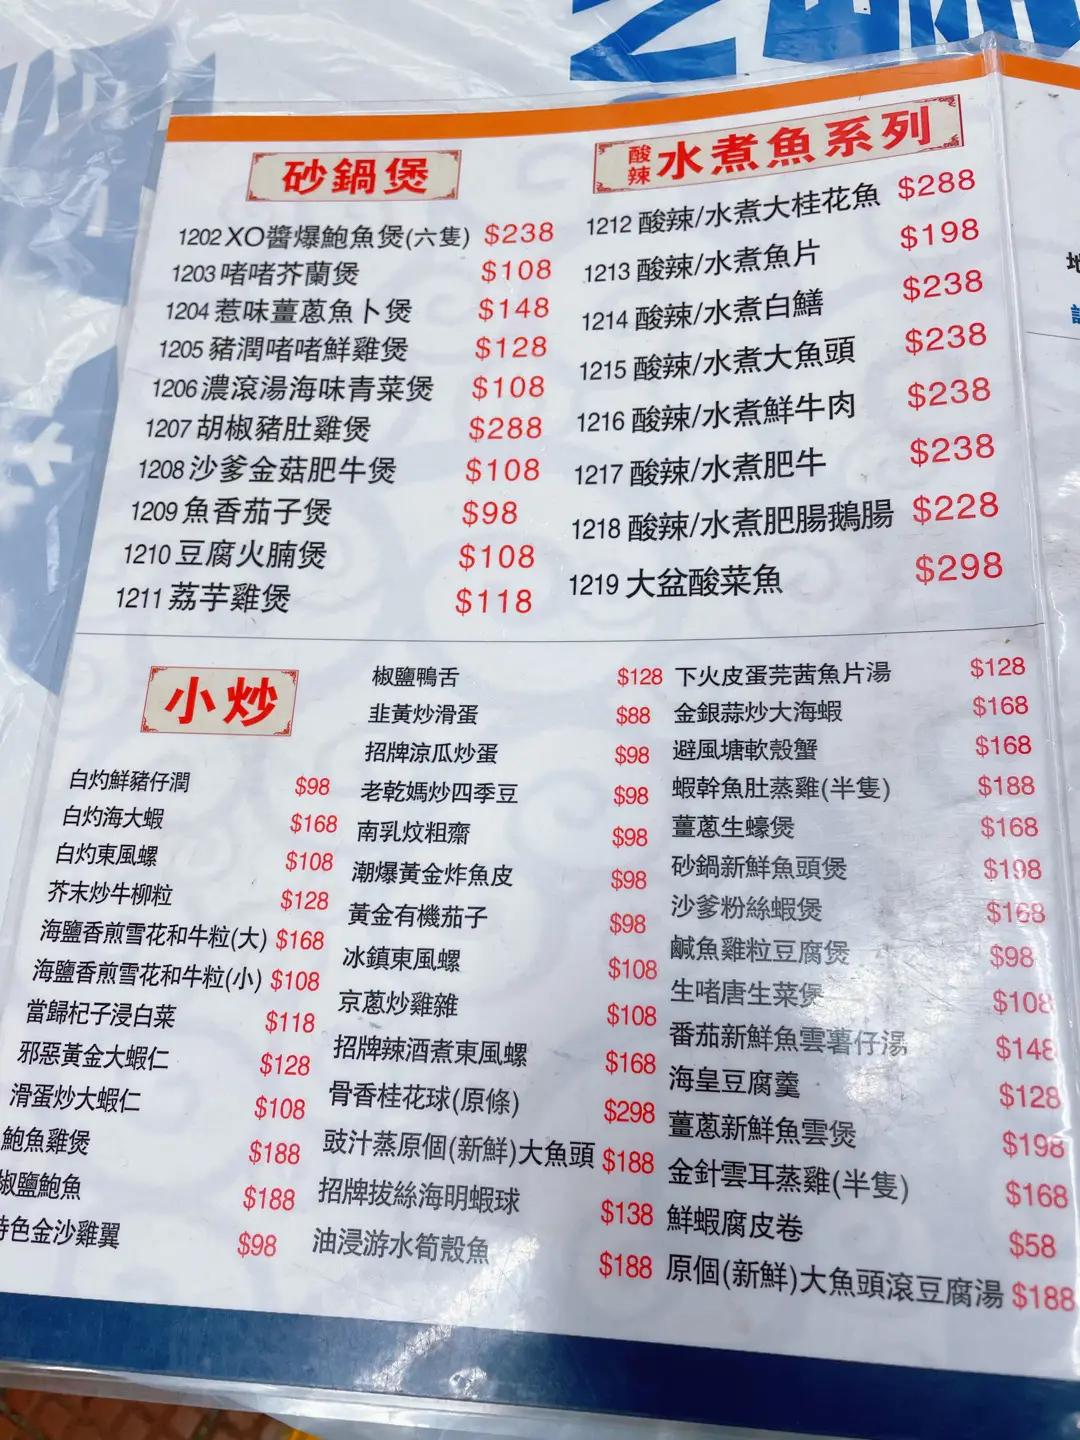 砂鍋煲
1202 XO醬爆鮑魚煲(六隻) $238
1203 啫啫芥蘭煲 $108
1204 惹味薑蔥魚卜煲 $148
1205 豬潤啫啫鮮雞煲 $128
1206 濃滾湯海味青菜煲 $108
1207 胡椒豬肚雞煲 $288
1208 沙爹金菇肥牛煲 $108
1209 魚香茄子煲 $98
1210 豆腐火腩煲 $108
1211 荔芋雞煲 $118
酸辣 水煮魚系列
1212 酸辣/水煮大桂花魚 $288
1213 酸辣/水煮魚片 $198
1214 酸辣/水煮白鱔 $238
1215 酸辣/水煮大魚頭 $238
1216 酸辣/水煮鮮牛肉 $238
1217 酸辣/水煮肥牛 $238
1218 酸辣/水煮肥腸鵝腸 $228
1219 大盆酸菜魚 $298
小炒
白灼鮮豬仔潤 $98
白灼海大蝦 $168
白灼東風螺 $108
芥末炒牛柳粒 $128
海鹽香煎雪花和牛粒(大) $168
海鹽香煎雪花和牛粒(小) $108
當歸杞子浸白菜 $118
邪惡黃金大蝦仁 $128
滑蛋炒大蝦仁 $108
鮑魚雞煲 $188
椒鹽鮑魚 $188
色金沙雞翼 $98
椒鹽鴨舌 $128
韭黃炒滑蛋 $88
招牌涼瓜炒蛋 $98
老乾媽炒四季豆 $98
南乳炆粗齋 $98
潮爆黃金炸魚皮 $98
黃金有機茄子 $98
冰鎮東風螺 $108
京蔥炒雞雜 $108
招牌辣酒煮東風螺 $168
骨香桂花球(原條) $298
豉汁蒸原個(新鮮)大魚頭 $188
招牌拔絲海明蝦球 $138
油浸游水筍殼魚 $188
下火皮蛋芫茜魚片湯 $128
金銀蒜炒大海蝦 $168
避風塘軟殼蟹 $168
蝦幹魚肚蒸雞(半隻) $188
薑蔥生蠔煲 $168
砂鍋新鮮魚頭煲 $198
沙爹粉絲蝦煲 $168
鹹魚雞粒豆腐煲 $98
生啫唐生菜煲 $108
番茄新鮮魚雲薯仔湯 $148
海皇豆腐羹 $128
薑蔥新鮮魚雲煲 $198
金針雲耳蒸雞(半隻) $168
鮮蝦腐皮卷 $58
原個(新鮮)大魚頭滾豆腐湯 $188